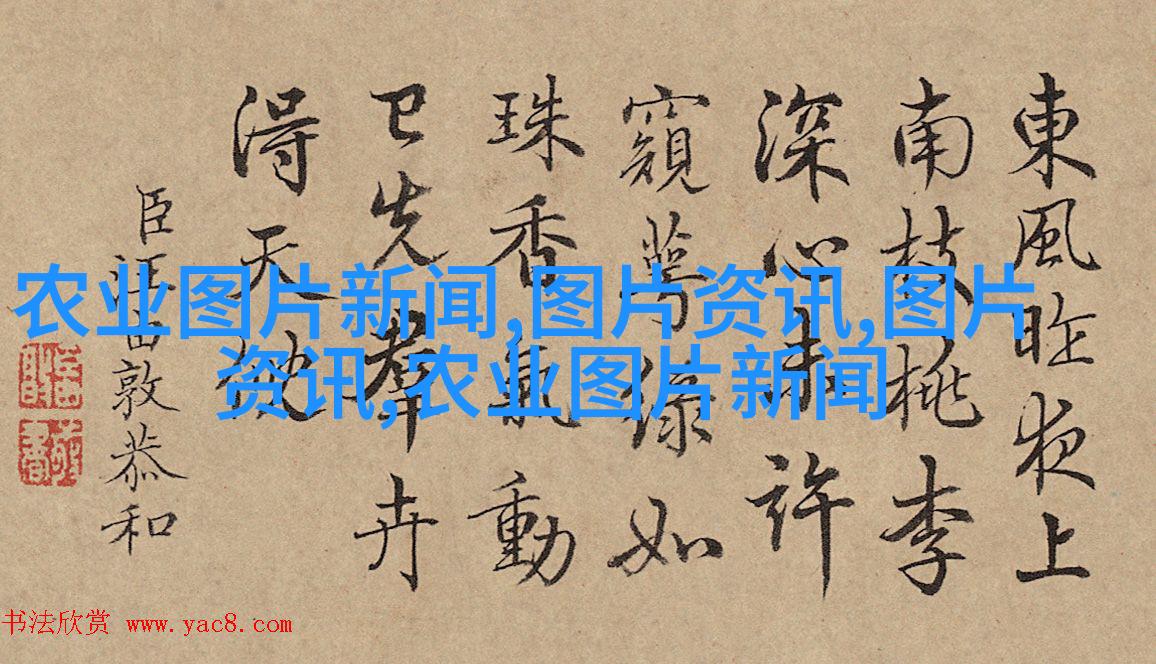 東風昨夜上
南枝桃李
深心未許
窺萼綠如
珠香氣動
已先羣卉
得天
臣汪由敦恭和
农业图片新闻,图片资讯,图片
资讯,农业图片新闻
书法欣赏 www.yac8.com